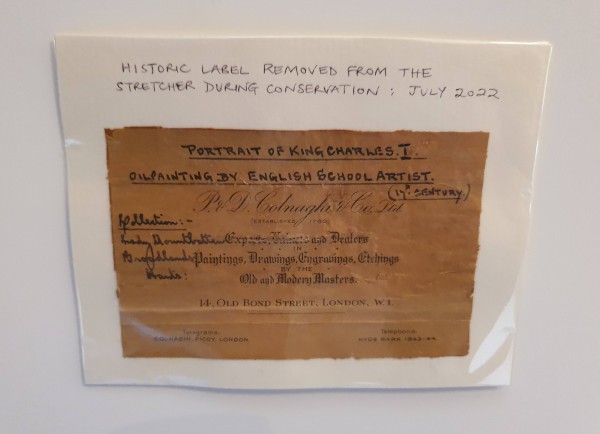 HISTORIC LABEL REMOVED FROM THE
STRETCHER DURING CONSERVATION : JULY 2022
PORTRAIT OF KING CHARLES. I.
OILPAINTING BY ENGLISH SCHOOL ARTIST.
(17th CENTURY)
P. & D. Colnaghi & Co., Ltd
(ESTABLISHED 1760)
Collection:-
Lady Mountbatten and Dealers
IN
Broadlands Paintings, Drawings, Engravings, Etchings
BY THE
Old and Modern Masters.
14, OLD BOND STREET, LONDON, W.1.
Telegrams: Telephone:
COLNAGHI, PICCY, LONDON HYDE PARK